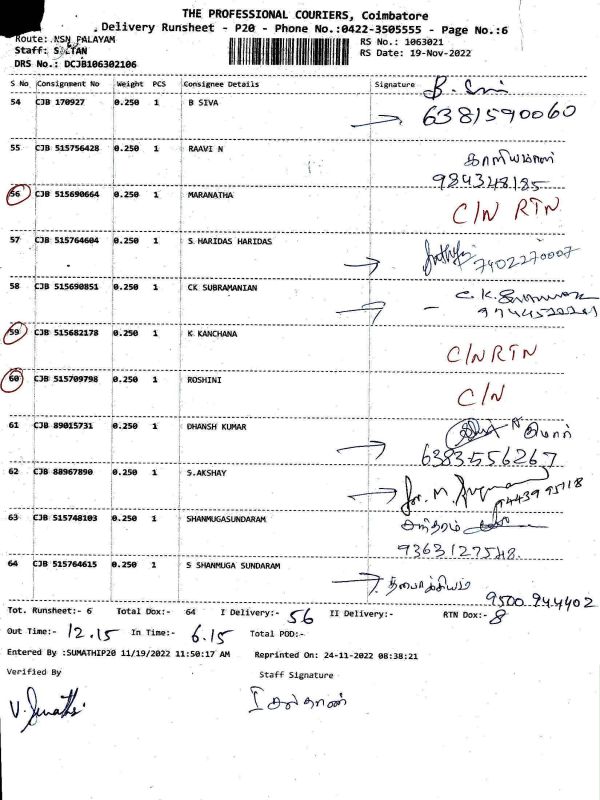 THE PROFESSIONAL COURIERS, Coimbatore
Delivery Runsheet - P20 - Phone No.:0422-3505555 - Page No.:6
Route: NSN PALAYAM
RS No.: 1063021
Staff: SULTAN
RS Date: 19-Nov-2022
DRS No.: DCJB106302106
S No Consignment No Weight PCS Consignee Details Signature
54 CJB 170927 0.250 1 B SIVA
6381590060
55 CJB 515756428 0.250 1 RAAVI N காளியம்மாள்
984348185
56 CJB 515690664 0.250 1 MARANATHA C/N RTN
57 CJB 515764604 0.250 1 S HARIDAS HARIDAS
7402270007
58 CJB 515690851 0.250 1 CK SUBRAMANIAN
59 CJB 515682178 0.250 1 K KANCHANA C/N RTN
60 CJB 515709798 0.250 1 ROSHINI C/N
61 CJB 89015731 0.250 1 DHANSH KUMAR
6383556267
62 CJB 88967890 0.250 1 S.AKSHAY
63 CJB 515748103 0.250 1 SHANMUGASUNDARAM
9363127548
64 CJB 515764615 0.250 1 S SHANMUGA SUNDARAM
9500 944402
Tot. Runsheet:- 6 Total Dox:- 64 I Delivery:- 56 II Delivery:- RTN Dox:- 8
Out Time:- 12.15 In Time:- 6.15 Total POD:-
Entered By :SUMATHIP20 11/19/2022 11:50:17 AM Reprinted On: 24-11-2022 08:38:21
Verified By Staff Signature
V. Sumathi